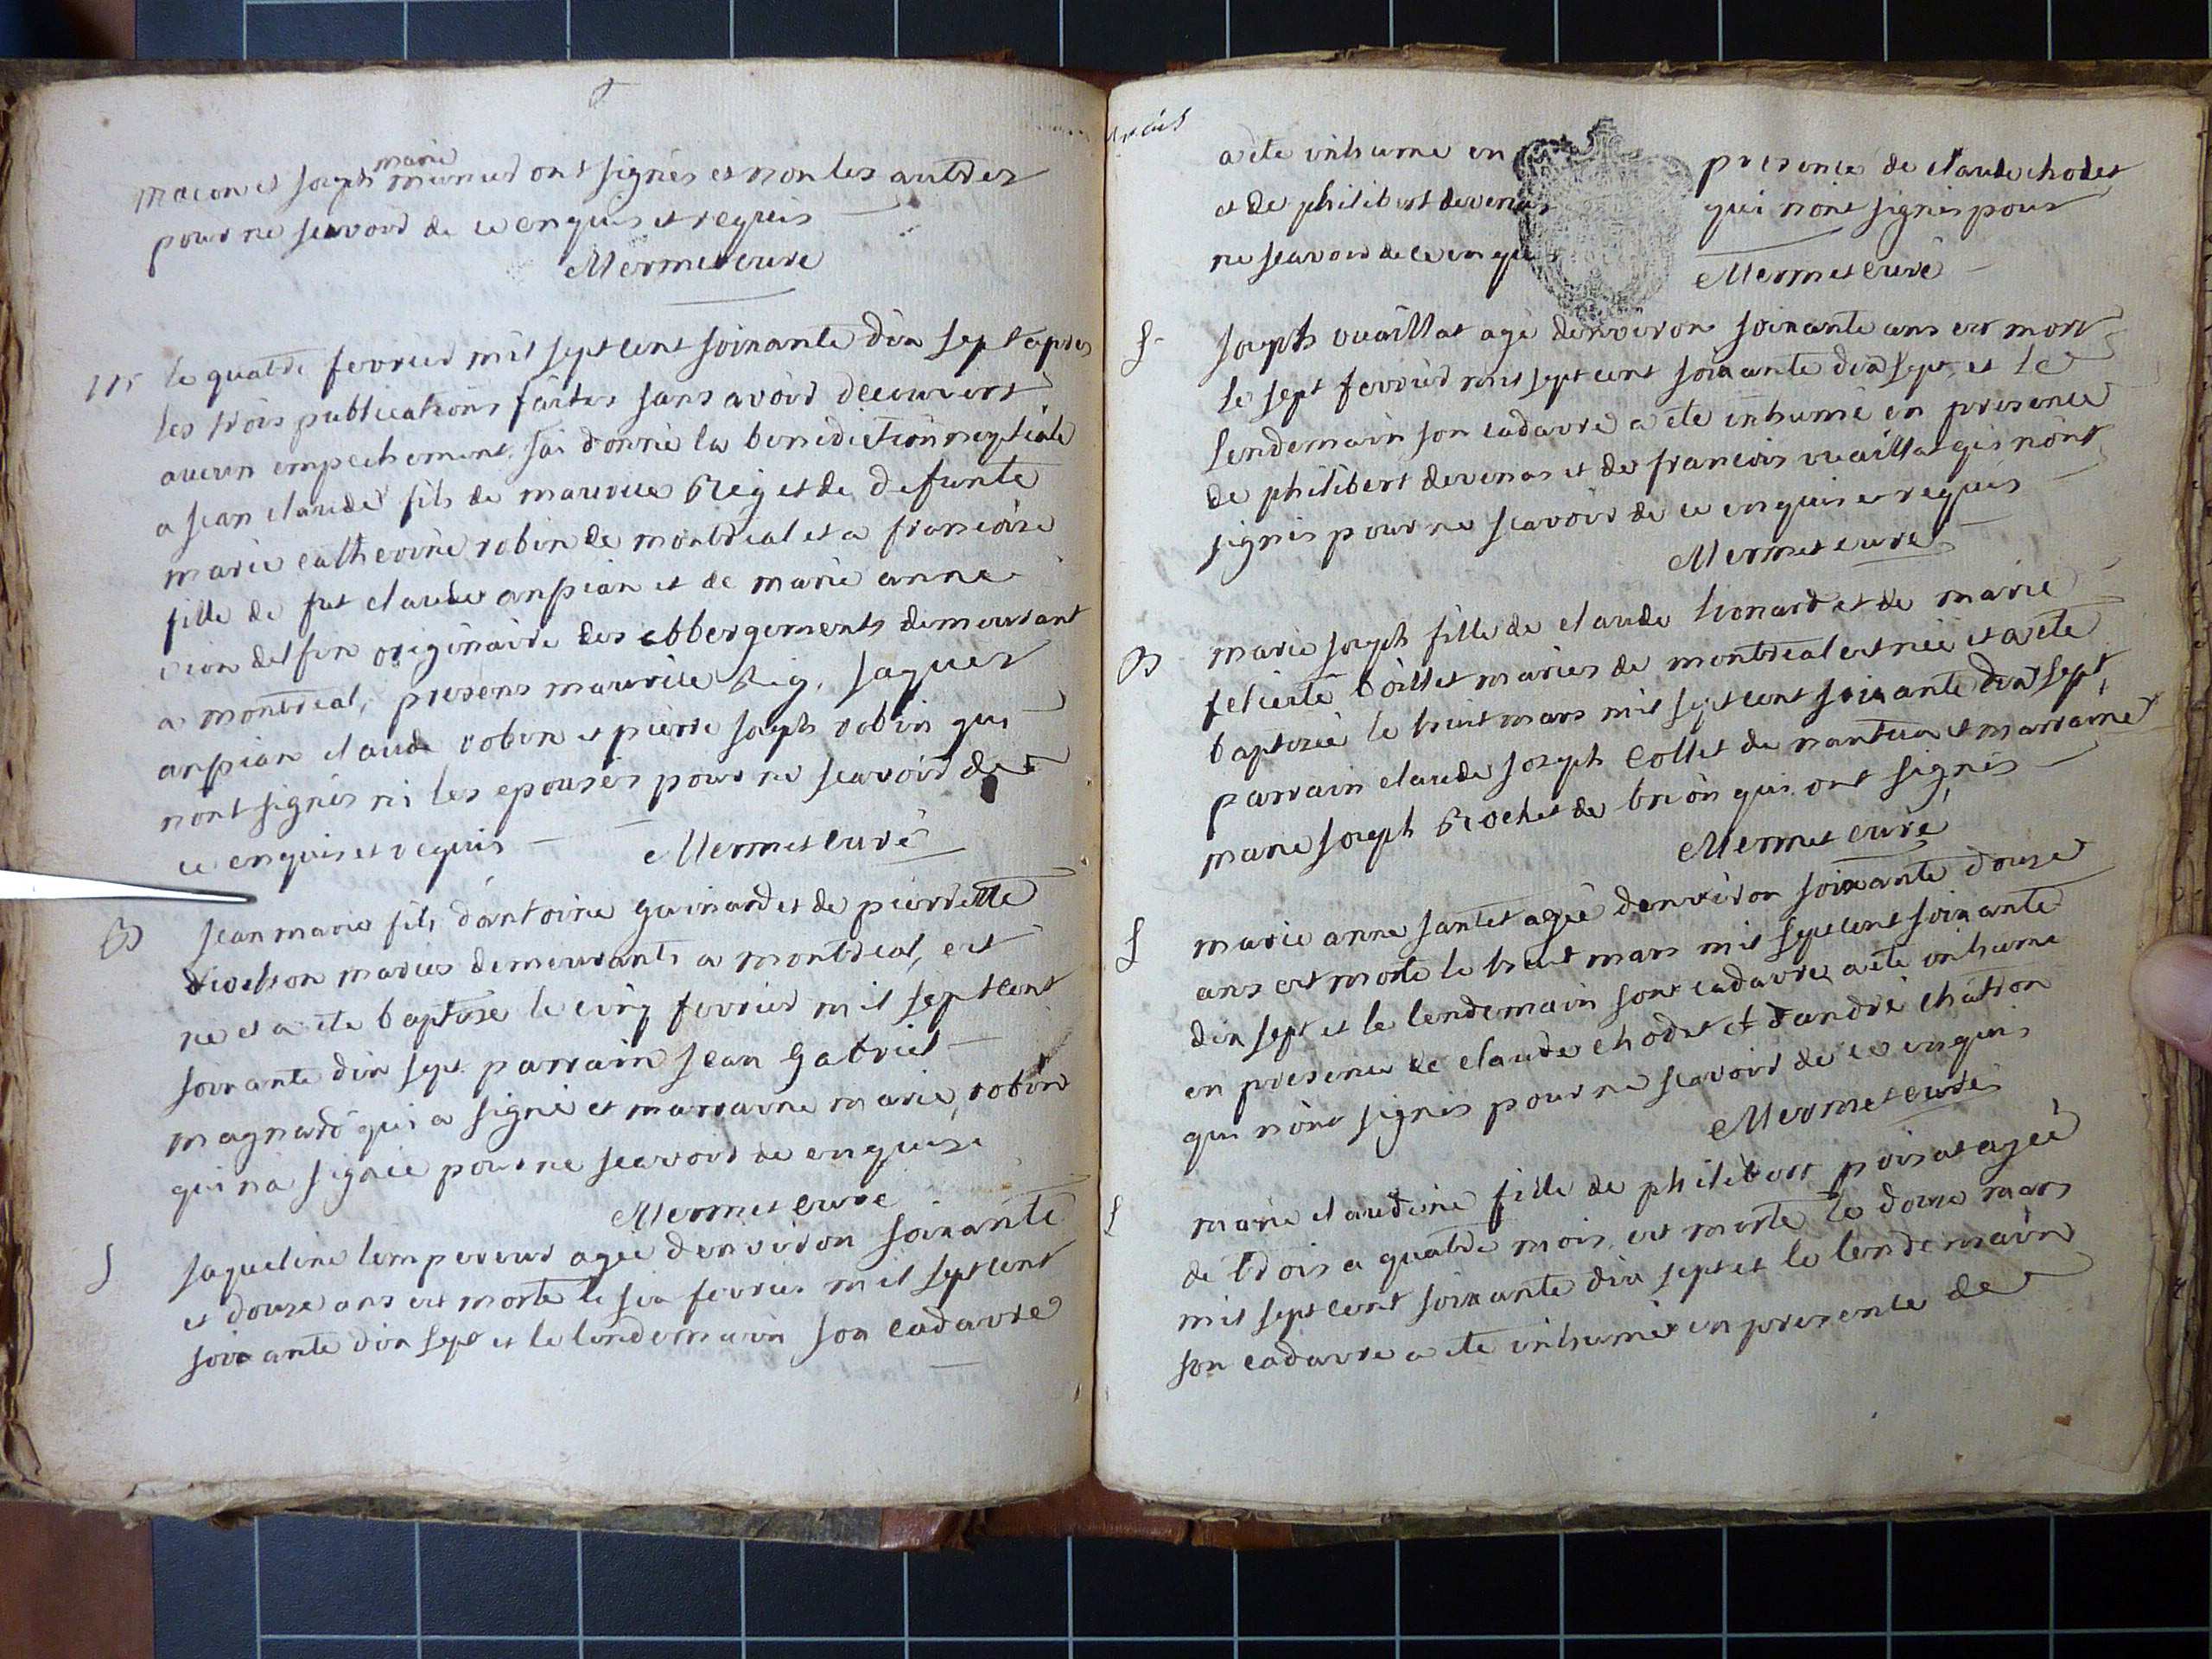 marie
macon et joseph meunied ont signés et non les autres
pour ne scavoir de ce enquis et requis
Mermet curé
le quatre fevrier mil sept cent soixante dix sept apres
les trois publications faites sans avoir decouvert
aucun empechement jai donné la benediction nuptiale
a jean claude fils de maurice Reg et de defunte
marie catherine robin de montreal et a francoise
fille de fut claude anpian et de marie anne
originaire des abbergements demeurant
a montreal, presens maurice Reg, jaques
anpian claude robin et pierre joseph robin qui
nont signés ni les epousés pour ne scavoir de
ce enquis et requis Mermet curé
B jean marie fils dantoine guinard et de pierrette
mariés demeurants a montreal, est
né et a ete baptisé le cinq fevrier mil sept cent
soixante dix sept parrain jean gabriel
magnard qui a signé et marraine marie robin
qui na signée pour ne scavoir de enquise
Mermet curé
S jaqueline lempereur agée denviron soixante
et douze ans est morte le six fevrier mil sept cent
soixante dix sept et le lendemain son cadavre
a ete inhumé en presence de claude chodet
et de philibert devenas qui nont signés pour
ne scavoir de ce enquis Mermet curé
S joseph vuaillat agé denviron soixante ans est mort
le sept fevrier mil sept cent soixante dix sept et le
lendemain son cadavre a ete inhumé en presence
de philibert devenas et de francois vuaillat qui nont
signés pour ne scavoir de ce enquis et requis
Mermet curé
B marie joseph fille de claude lionard et de marie
felicité boillet mariés de montreal est née et a ete
baptisée le huit mars mil sept cent soixante dix sept,
parrain claude joseph collet de nantua et marraine
marie joseph Rochet de brion qui ont signés
Mermet curé
S marie anne santet agée denviron soixante douze
ans est morte le huit mars mil sept cent soixante
dix sept et le lendemain son cadavre a ete inhumé
en presence de claude chodet et dandré chatron
qui nont signés pour ne scavoir de ce enquis
Mermet curé
S marie claudine fille de philibert poisat agée
de trois a quatre mois est morte le douze mars
mil sept cent soixante dix sept et le lendemain
son cadavre a ete inhumé en presence de